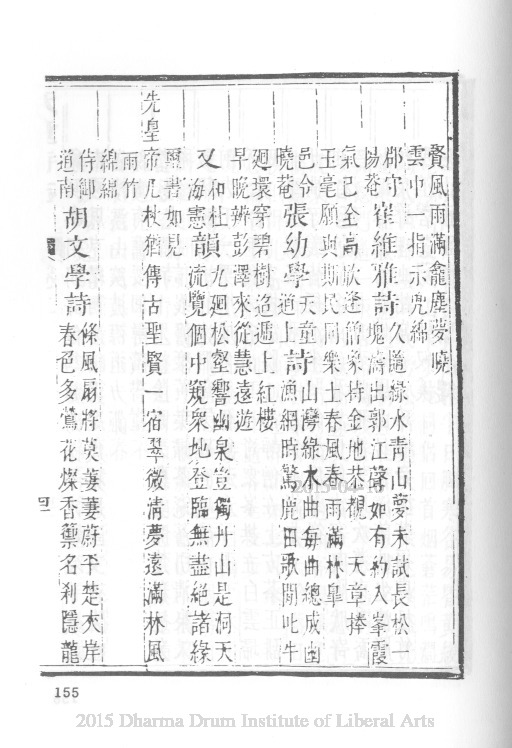 賢風雨滿龕塵夢曉
雲中一指示兜綿
郡守崔維雅詩久隨綠水青山夢未試長松一
陽菴塊濤出郭江聲如有約入峯霞
氣已全高歌逢僧象持金地恭覩天章捧
玉毫願與斯民同樂土春風春雨滿林皐
邑令張幼學天童山灣綠水曲每曲總成幽
曉菴道上詩漁網時驚鹿田歌間叱牛
廻環穿碧樹迢遞上紅樓
早晚辨彭澤來從慧遠遊
又和杜韻九廻松壑響幽泉豈獨丹山是洞天
海憲流覽個中窺衆地登臨無盡絕諸緣
璽書如見
先皇帝几杖猶傳古聖賢一宿翠微清夢遠滿林風
雨竹
綿綿
侍御胡文學詩條風扇將莫萋萋蔚平楚夾岸
道南春色多鶯花燦香蘗名利隱龍
四一
155
2015-04-16
2015 Dharma Drum Institute of Liberal Arts